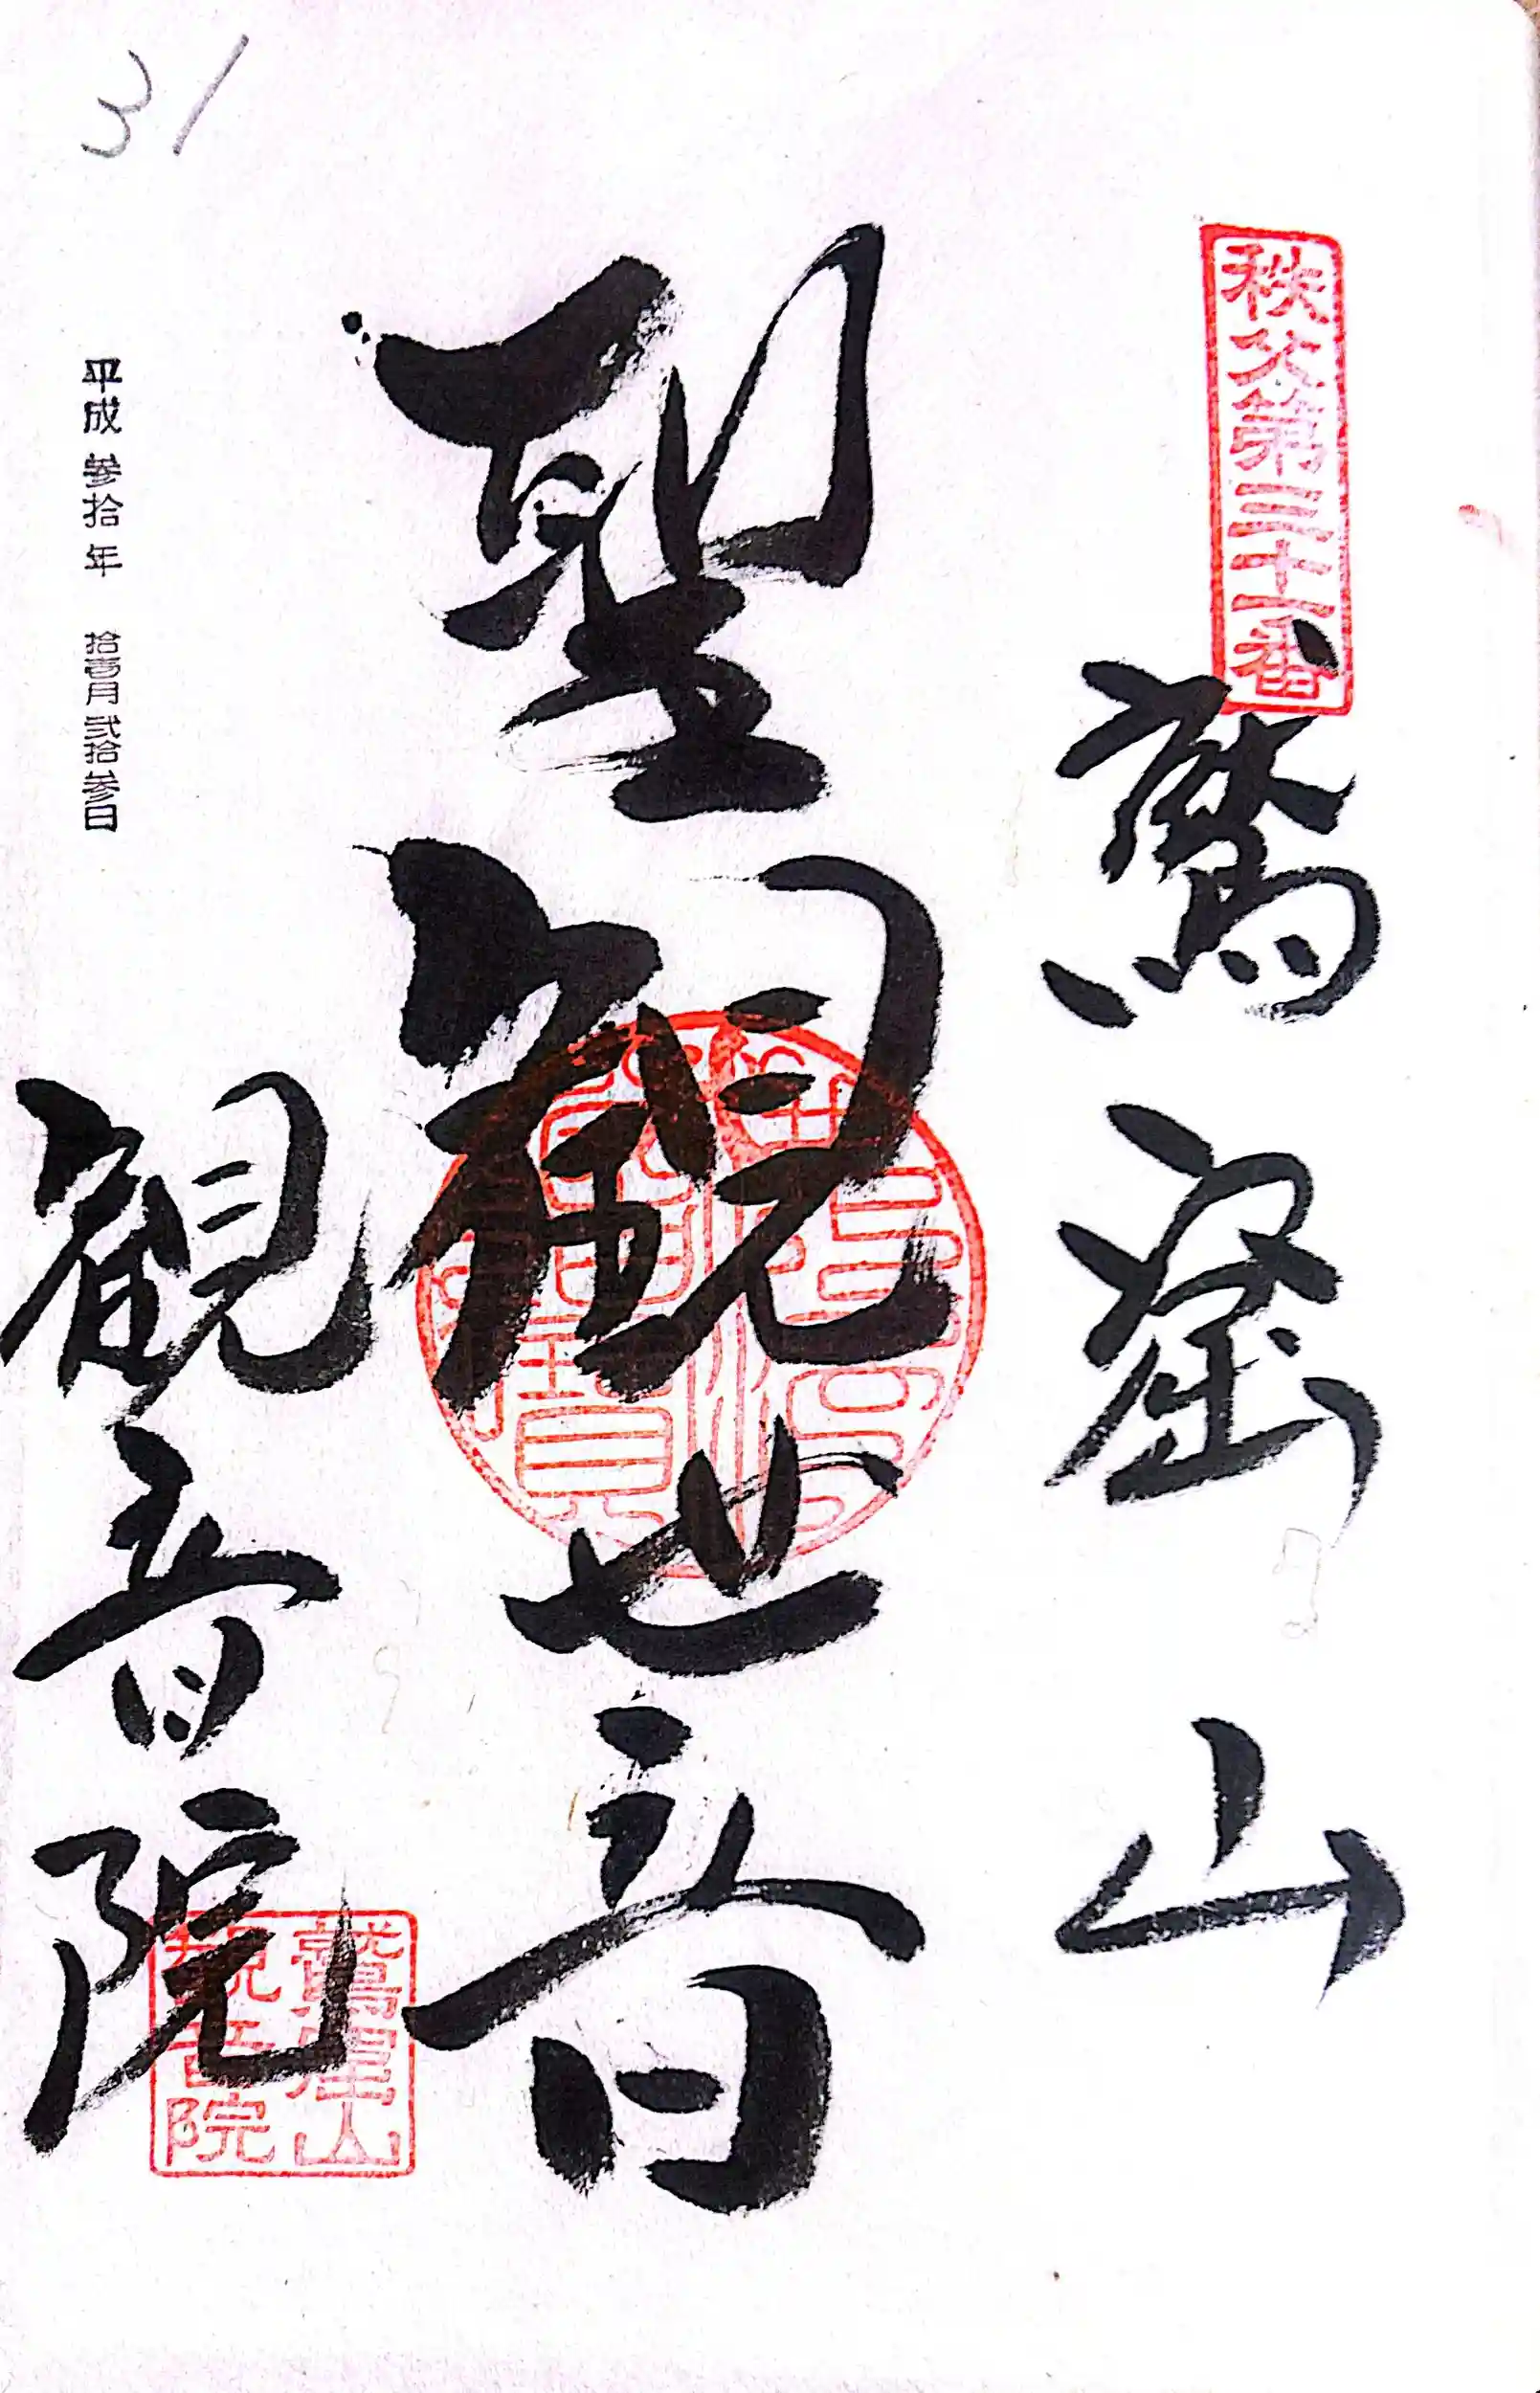 秩父第三十一番
鷲窟山
聖観世音
平成参拾年 拾壱月弐拾参日
観音院
鷲窟山
観音院
31